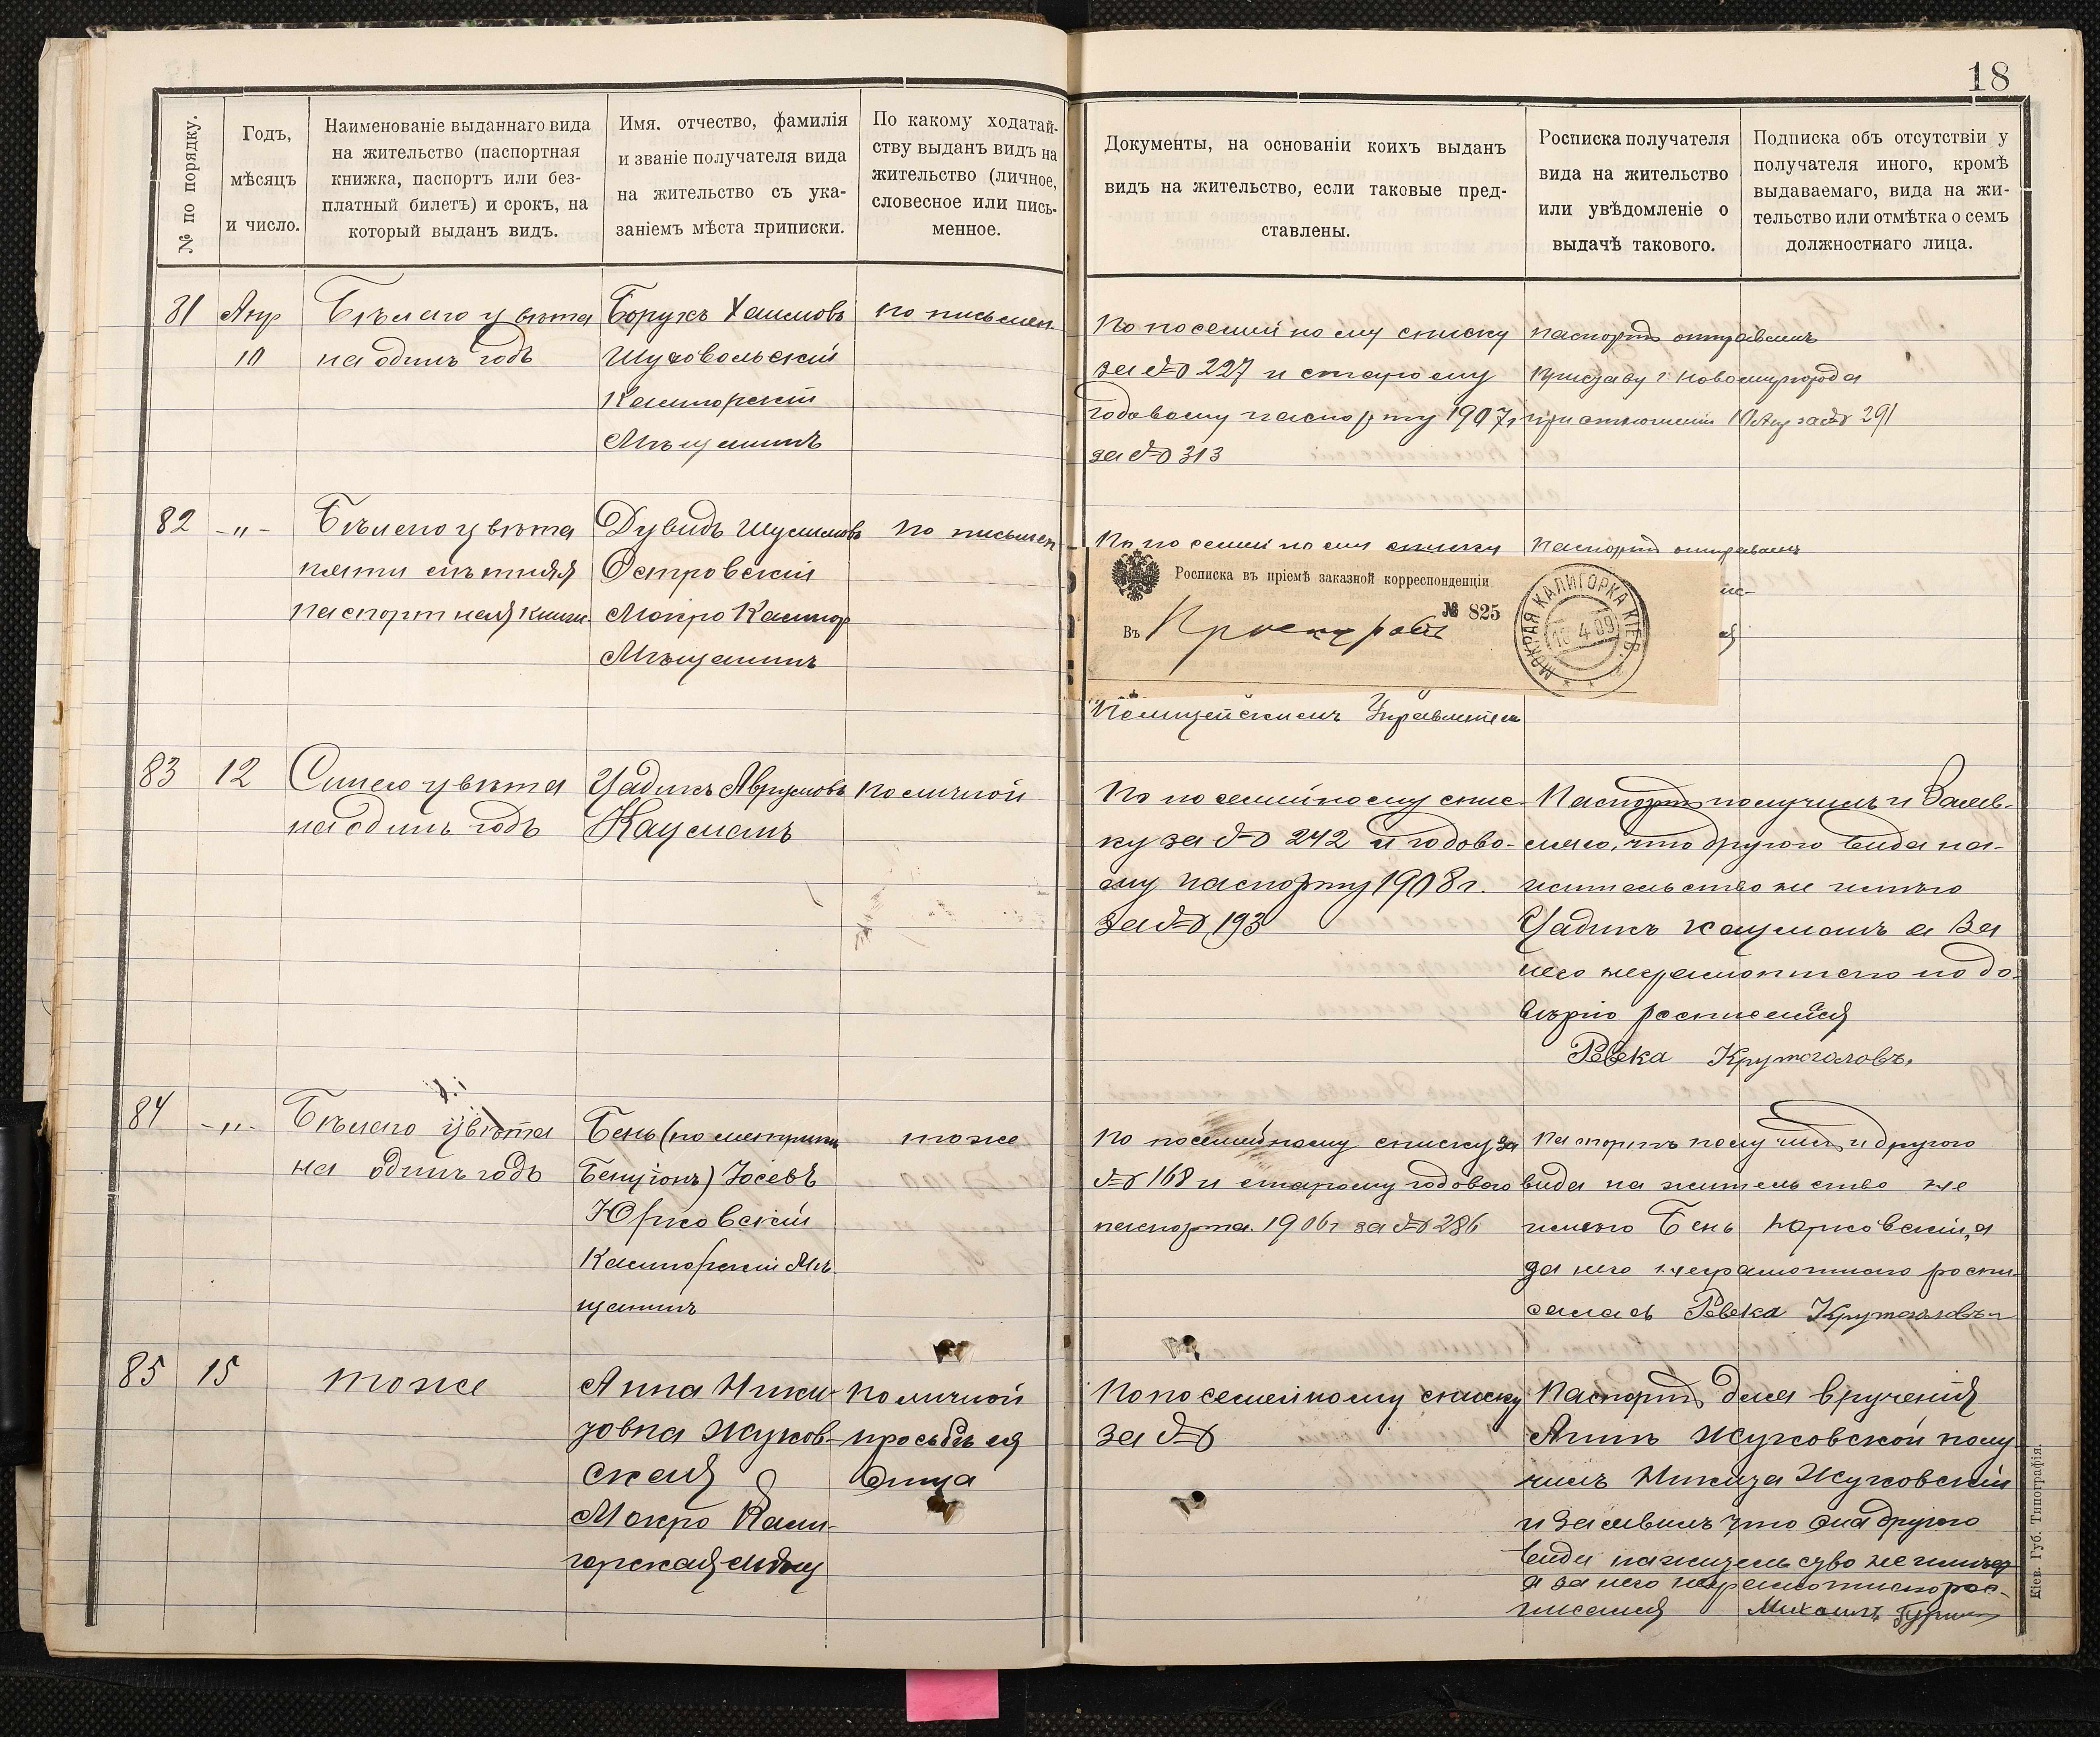 18
№ по порядку.
Годъ,
мѣсяцъ
и число.
Наименованіе выданнаго вида
на жительство (паспортная
книжка, паспортъ или без-
платный билетъ) и срокъ, на
который выданъ видъ.
Имя, отчество, фамилія
и званіе получателя вида
на жительство съ ука-
заніемъ мѣста приписки.
По какому ходатай-
ству выданъ видъ на
жительство (личное,
словесное или пись-
менное.
Документы, на основаніи коихъ выданъ
видъ на жительство, если таковые пред-
ставлены.
Росписка получателя
вида на жительство
или увѣдомленіе о
выдачѣ такового.
Подписка объ отсутствіи у
получателя иного, кромѣ
выдаваемаго, вида на жи-
тельство или отмѣтка о семъ
должностнаго лица.
81
Апр
10
Бѣлаго цвѣта
на одинъ годъ
Борухъ Хаимовъ
Калигорскій
Мѣщанинъ
по письмен.
По посемейному списку
за № 227 и старому
годовому паспорту 1907 г
за № 313
паспортъ отправленъ
Приставу г. Новомиргорода
при отношеніи 10 Апр за № 291
82
-"-
Бѣлаго цвѣта
пяти лѣтняя
паспортная книж.
Дувидъ
Островскій
Мокро Калигор
Мѣщанинъ
по письмен
По посемейному списку
паспортъ отправленъ
Росписка въ пріемѣ заказной корреспонденціи.
№ 825
Въ Проскуровъ
МОКРАЯ КАЛИГОРКА КІЕВ.
4 09
Полицейскимъ Управленіем
83
12
Синего цвѣта
на одинъ годъ
Цадикъ Аврумовъ
Кауманъ
по личной
По посемейному спис-
ку за № 242 и годово-
му паспорту 1908 г.
за № 193
Паспортъ получилъ и Заяв-
ляю, что другого вида на-
жительство не имѣю
Цадикъ Кауманъ а За
него неграмотнаго по до-
вѣрію росписался
Ревека Крутоголовъ.
84
-"-
Бѣлаго цвѣта
на одинъ годъ
Бень (по метрики
Бенціонъ) Іосевъ
Юрковскій
Калигорскій Мѣ-
щанинъ
тоже
По посемейному списку за
№ 168 и старому годового
паспорта 1906 г за № 286
Паспортъ получилъ и другого
вида на жительство не
имѣю Бень Юрковскій, а
за него неграмотнаго роспи-
салась Ревека Крутоголовъ
85
15
тоже
Анна Ники-
Жуков-
ская
Мокро Кали-
горская
По личной
просьбѣ ея
Отца
По посемейному списку
за №
Паспортъ для врученія
Аннѣ Жуковской полу
чилъ Жуковскій
и Заявилъ что она другого
вида на жительство не имѣетъ
а за него неграмотнаго рос-
писался Михаилъ
Кіев. Губ. Типографія.